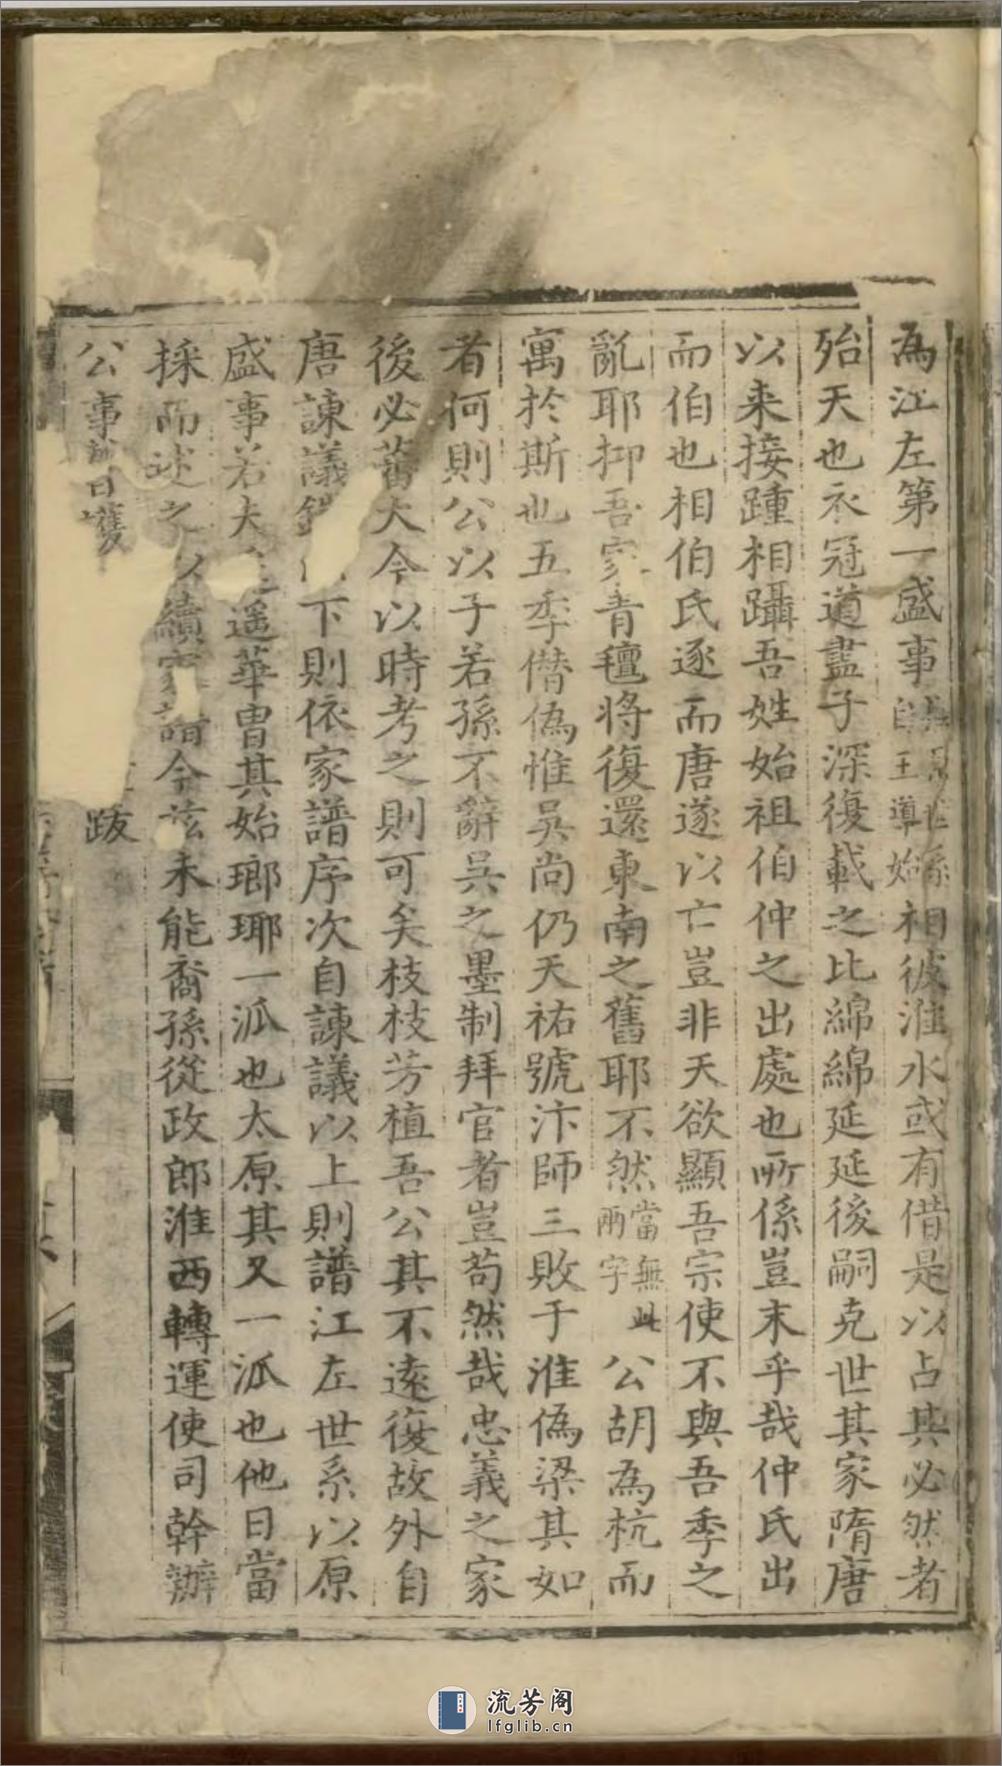 為江左第一盛事自王導始相彼淮水或有借是以占其必然者
殆天也衣冠道盡子深復載之比綿綿延延後嗣克世其家隋唐
以来接踵相躡吾姓始祖伯仲之出處也所係豈末乎哉仲氏出
而伯也相伯氏逐而唐遂以亡豈非天欲顯吾宗使不與吾季之
亂耶抑吾家青氊將復還東南之舊耶不然當無此兩字公胡為杭而
寓於斯也五季僭偽惟吳尚仍天祐號汴師三敗于淮偽梁其如
者何則公以子若孫不辭吳之墨制拜官者豈苟然哉忠義之家
後必蕃大今以時考之則可矣枝枝芳植吾公其不遠復故外自
唐諫議下則依家譜序次自諫議以上則譜江左世系以原
盛事若夫遥遥華胄其始瑯琊一派也太原其又一派也他日當
採而述之以續家譜令茲未能裔孫從政郎淮西轉運使司幹辦
公事曰 跋
流芳阁
lfglib.cn